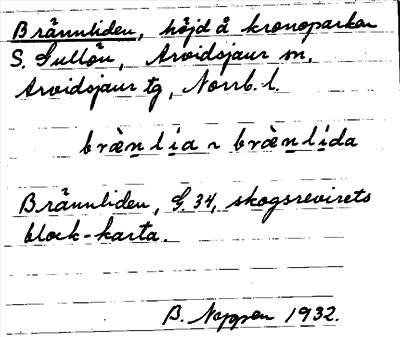 Brännliden, höjd å kronoparken
S. Gullön, Arvidsjaur sn,
Arvidsjaur tg, Norrb. l.
bræ̀nlia ~ bræ̀nlida
Brännliden, G. 34, skogsrevirets
block-karta.
B. 1932.